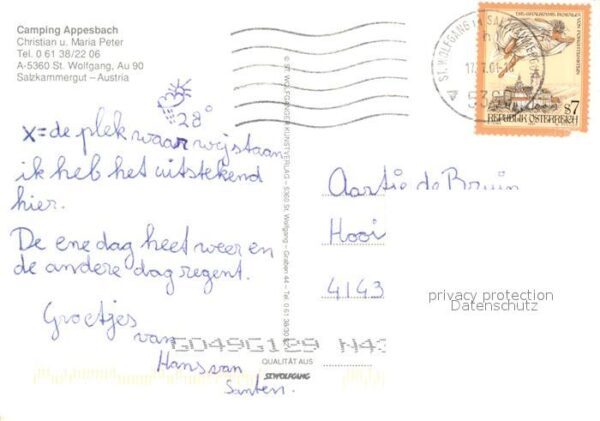 Camping Appesbach
Christian u. Maria Peter
Tel. 0 61 38/22 06
A-5360 St. Wolfgang, Au 90
Salzkammergut – Austria
28°
x = de plek waar wij staan
ik heb het uitstekend
hier.
De ene dag heet weer en
de andere dag regent.
Groetjes
van
Hans van
Santen.
© ST. WOLFGANGER KUNSTVERLAG – 5360 St. Wolfgang – Graben 44 – Tel. 0 61 38/30
QUALITÄT AUS
ST. WOLFGANG
ST. WOLFGANG
5360
s7
REPUBLIK ÖSTERREICH
Aartie de Bruin
Hooi
4143
privacy protection
Datenschutz
GO49G129 N43